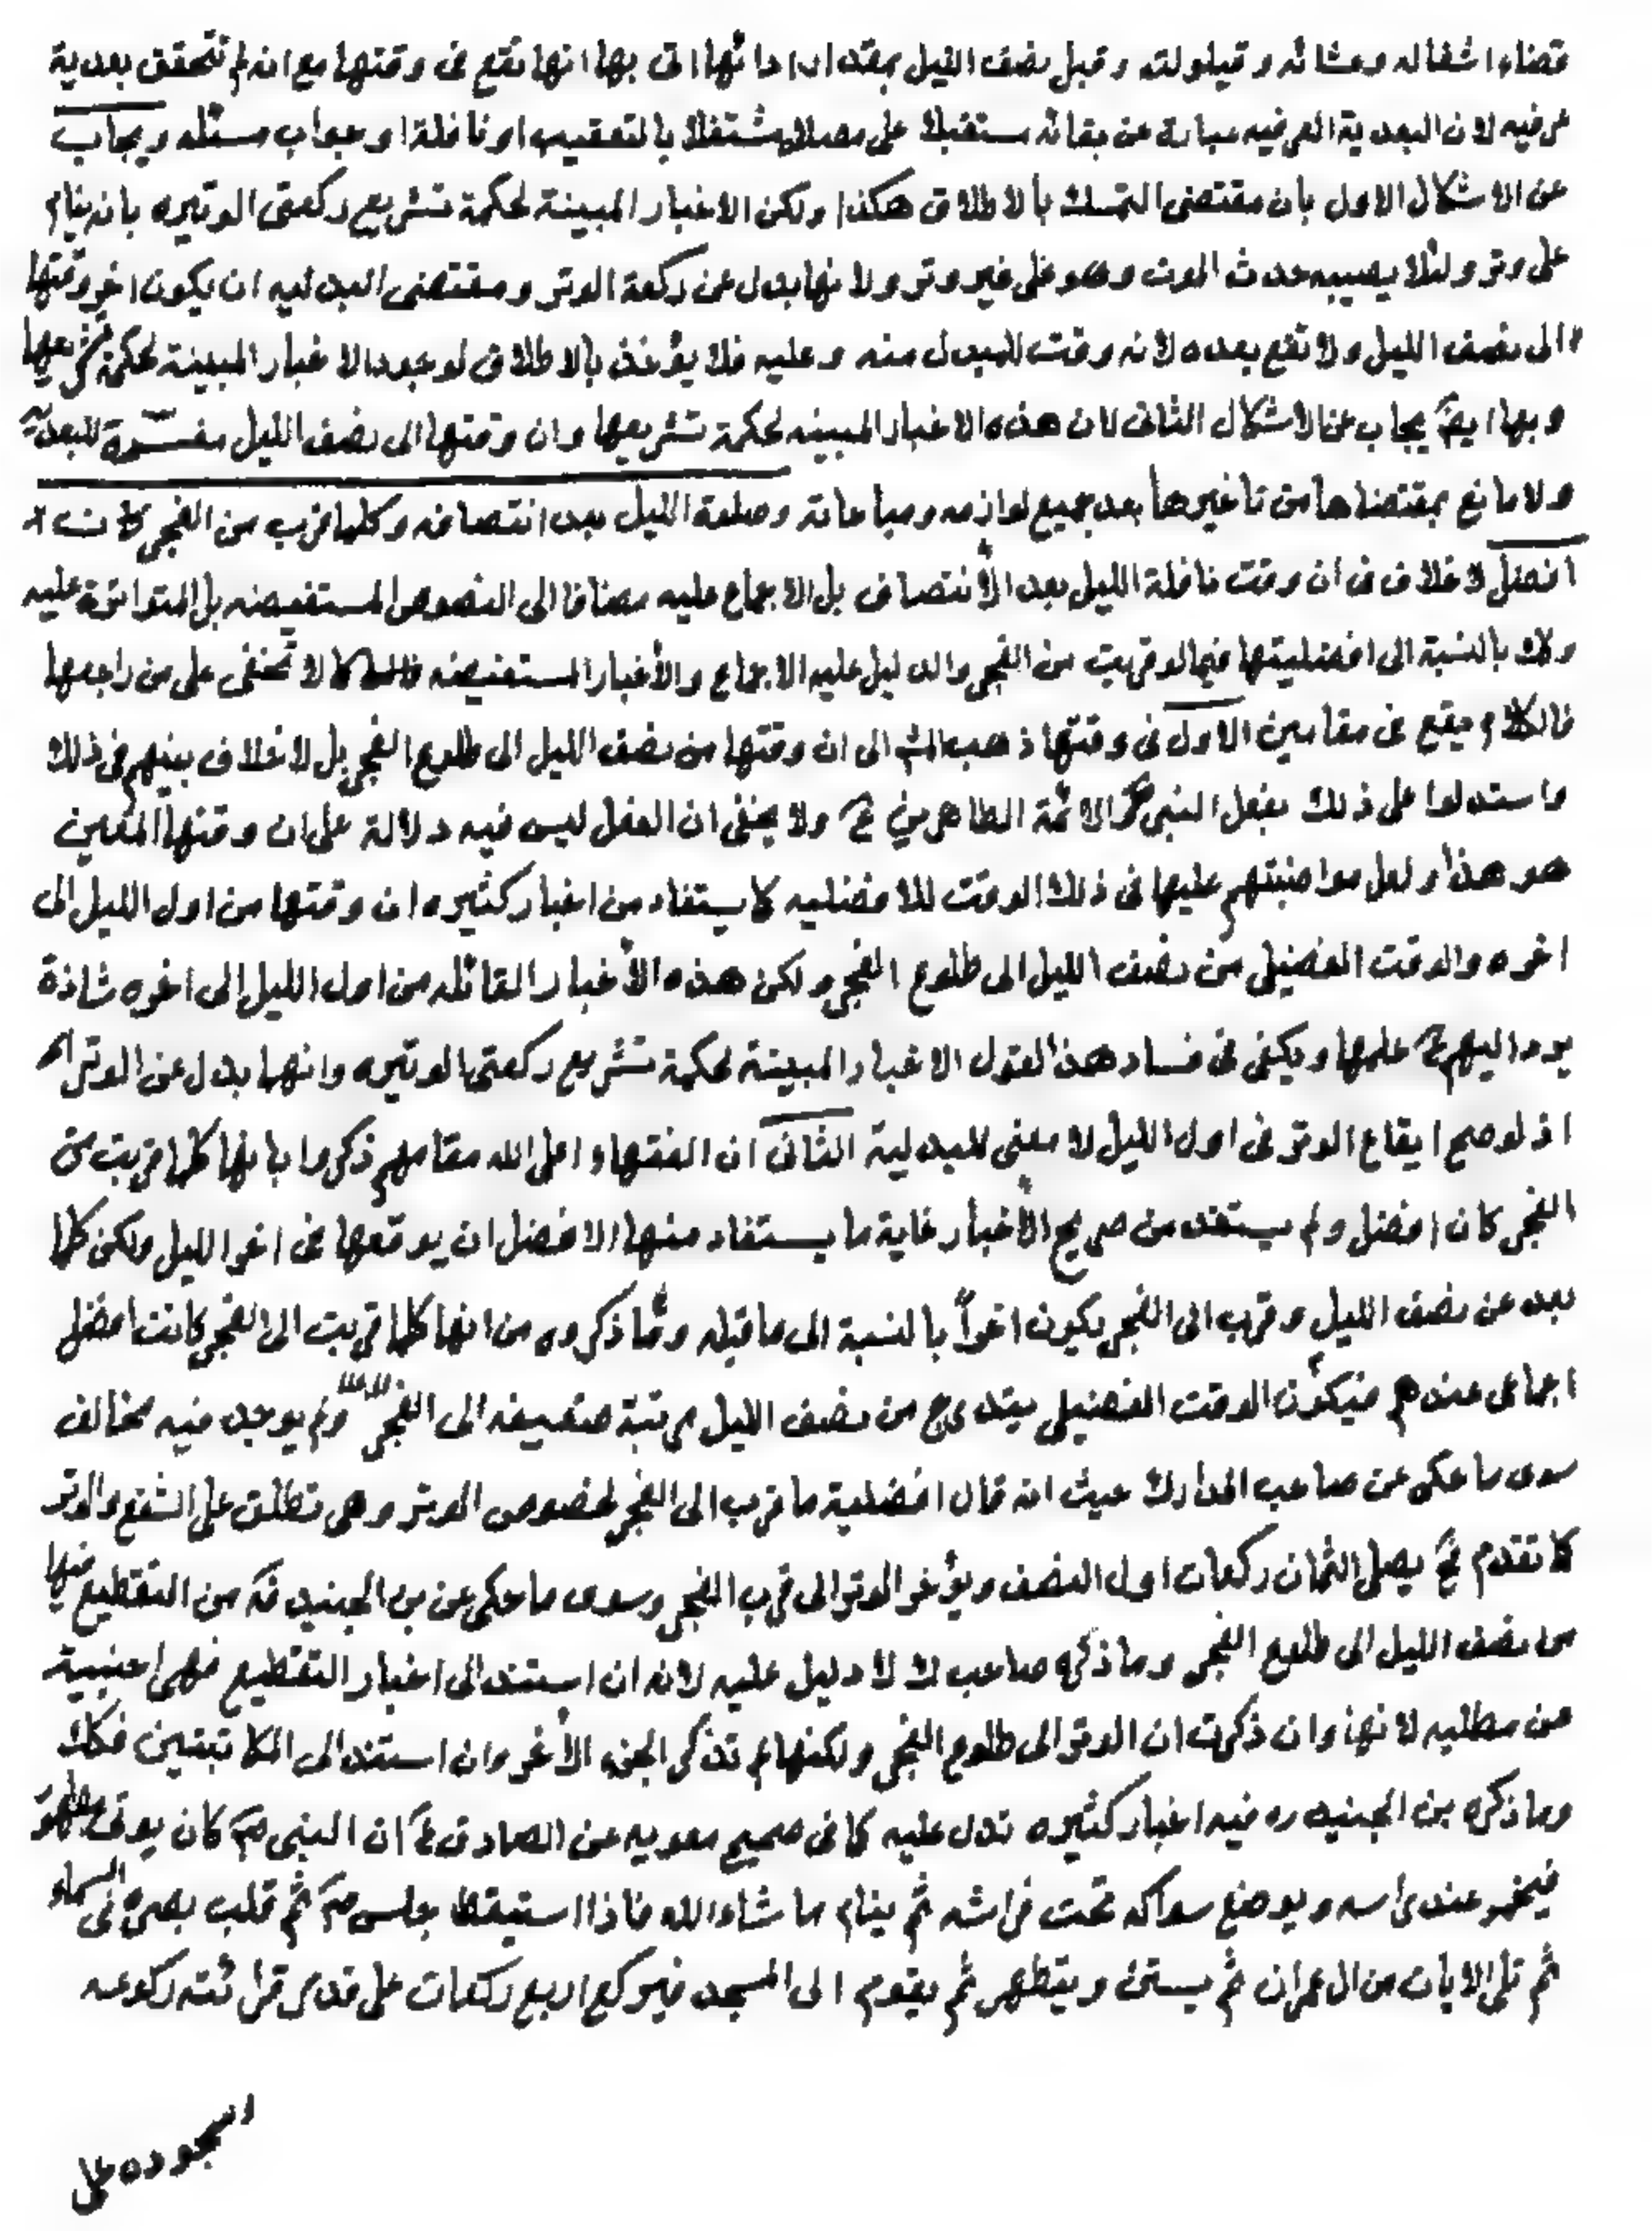 قضاء اشغاله وعشائه وقيلولته وقبل نصف الليل بمقدار ادائها اتى بها انها تقع فى وقتها مع انه لم تتحقق بعدية
عرفيه لان البعدية العرفيه عبارة عن بقائه مستقبلا على مصلاه مشتغلا بالتعقيب او نافلة او جواب مسئله ويجاب
عن الاشكال الاول بان مقتضى التمسك بالاطلاق هكذا ولكن الاخبار المبينة لحكمة تشريع ركعتى الوتيره بانه ينام
على وتر ولئلا يصيبه حدث الموت وهو على غير وتر ولانها بدل عن ركعة الوتر ومقتضى البدليه ان يكون اخر وقتها
الى نصف الليل ولا تقع بعده لانه وقت للمبدل منه وعليه فلا يؤخذ بالاطلاق لوجود الاخبار المبينة لحكمة تشريعها
وبها ايضً يجاب عن الاشكال الثانى لان هذه الاخبار المبينه لحكمة تشريعها وان وقتها الى نصف الليل مفسّرة للبعديّة
ولا مانع بمقتضاها من تاخيرها بعد جميع لوازمه ومباحاته وصلوة الليل بعد انتصافه وكلما قرب من الفجر كانت
افضل لاخلاف فى ان وقت نافلة الليل بعد الأنتصاف بل الاجماع عليه مضافا الى النصوص المستفيضه بل المتواترة عليه
وكك بالنسبة الى افضليتها فيما لو قربت من الفجر والدليل عليه الاجماع والأخبار المستفيضه كما لا تخفى على من راجعها
فالكلام يقع فى مقامين الاول فى وقتها ذهب المش الى ان وقتها من نصف الليل الى طلوع الفجر بل لاخلاف بينهم فى ذلك
واستدلوا على ذلك بفعل النبى ص والائمة الطاهرين ع ولا يخفى ان الفعل ليس فيه دلالة على ان وقتها المعين
هو هذا ولعل مواضبتهم عليها فى ذلك الوقت للافضليه كما يستفاد من اخبار كثيره ان وقتها من اول الليل الى
اخره والوقت الفضيلى من نصف الليل الى طلوع الفجر ولكن هذه الأخبار القائله من اول الليل الى اخره شاذة
يرد اليهم ع علمها ويكفى فى فساد هذ القول الاخبار المبينة لحكمة تشريع ركعتى الوتيره وانهما بدل عن الوتر
اذ لو صح ايقاع الوتر فى اول الليل لا معنى للبدلية الثانى ان الفقهاء اعلى الله مقامهم ذكروا بانها كلما قربت من
الفجر كان افضل ولم يستفد من صريح الأخبار غاية ما يستفاد منها الافضل ان يوقعها فى اخر الليل ولكن كلما
بعد عن نصف الليل وقرب الى الفجر يكون اخراً بالنسبة الى ما قبله وممّا ذكروه من انها كلما قربت الى الفجر كانت افضل
اجماعى عندهم فيكون الوقت الفضيلى يتدرج من نصف الليل مرتبة ضعيفه الى الفجر ولم يوجد فيه مخالف
سوى ما حكى عن صاحب المدارك حيث انه قال افضلية ما قرب الى الفجر لخصوص الوتر وهى تطلق على الشفع والوتر
كما تقدم فح يصلى الثمان ركعات اول النصف ويؤخر الوتر الى قرب الفجر وسوى ما حكى عن بن الجنيد قه من التقطيع فيها
من نصف الليل الى طلوع الفجر وما ذكره صاحب ك لا دليل عليه لانه ان استند الى اخبار التقطيع فهى اجنبية
عن مطلبه لانها وان ذكرت ان الوتر الى طلوع الفجر ولكنها لم تذكر الجزء الأخر وان استند الى المكاتبتين فكك
وما ذكره بن الجنيد ره فيه اخبار كثيره تدل عليه كما فى صحيح معويه عن الصادق ع ان النبى ص كان يوتى بطهور
فيخمر عند راسه ويوضع سواكه تحت فراشه ثم ينام ما شاء الله فاذا استيقظ جلس ص ثم قلب بصره فى السماء
ثم تلى الايات من ال عمران ثم يستن ويتطهر ثم يقوم الى المسجد فيركع اربع ركعات على قدر قرائته ركوعه
وسجوده على